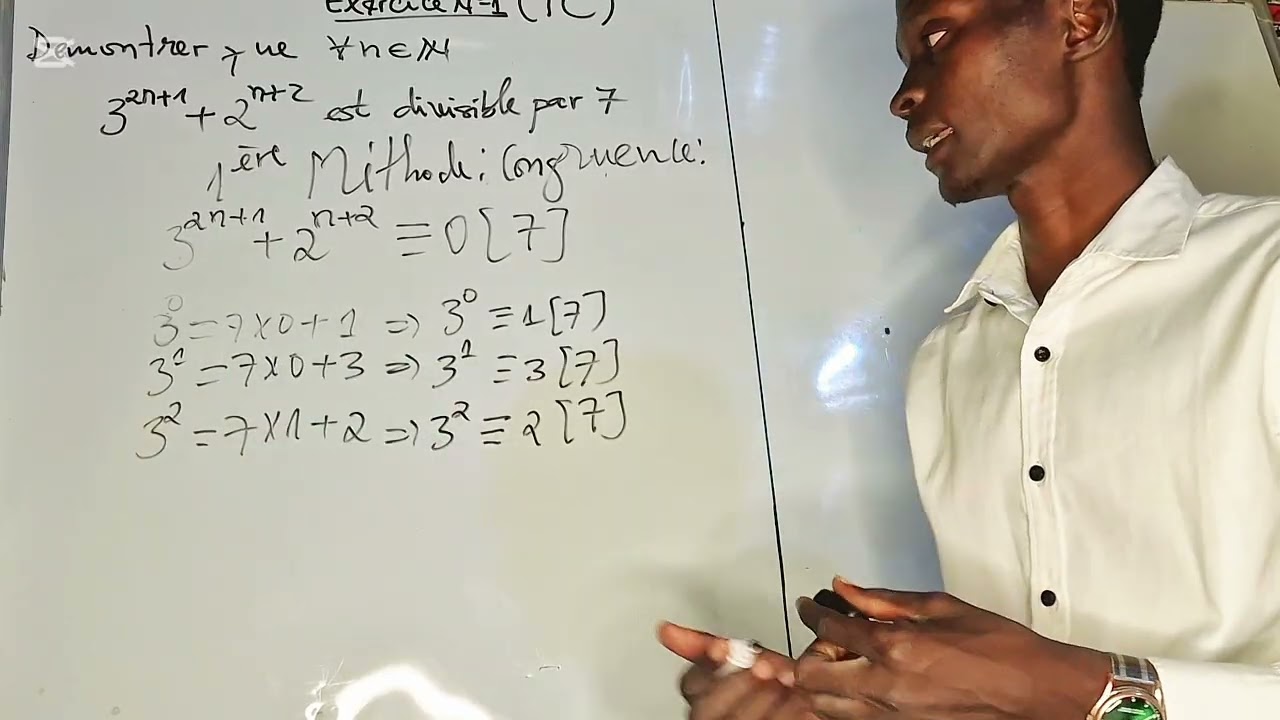 Exercice N°1 (TC)
Demontrer que ∀n∈ℕ
3^{2n+1} + 2^{n+2} est divisible par 7
1ère Méthode : Congruence :
3^{2n+1} + 2^{n+2} ≡ 0[7]
3^0 = 7×0+1 ⇒ 3^0 ≡ 1[7]
3^1 = 7×0+3 ⇒ 3^1 ≡ 3[7]
3^2 = 7×1+2 ⇒ 3^2 ≡ 2[7]